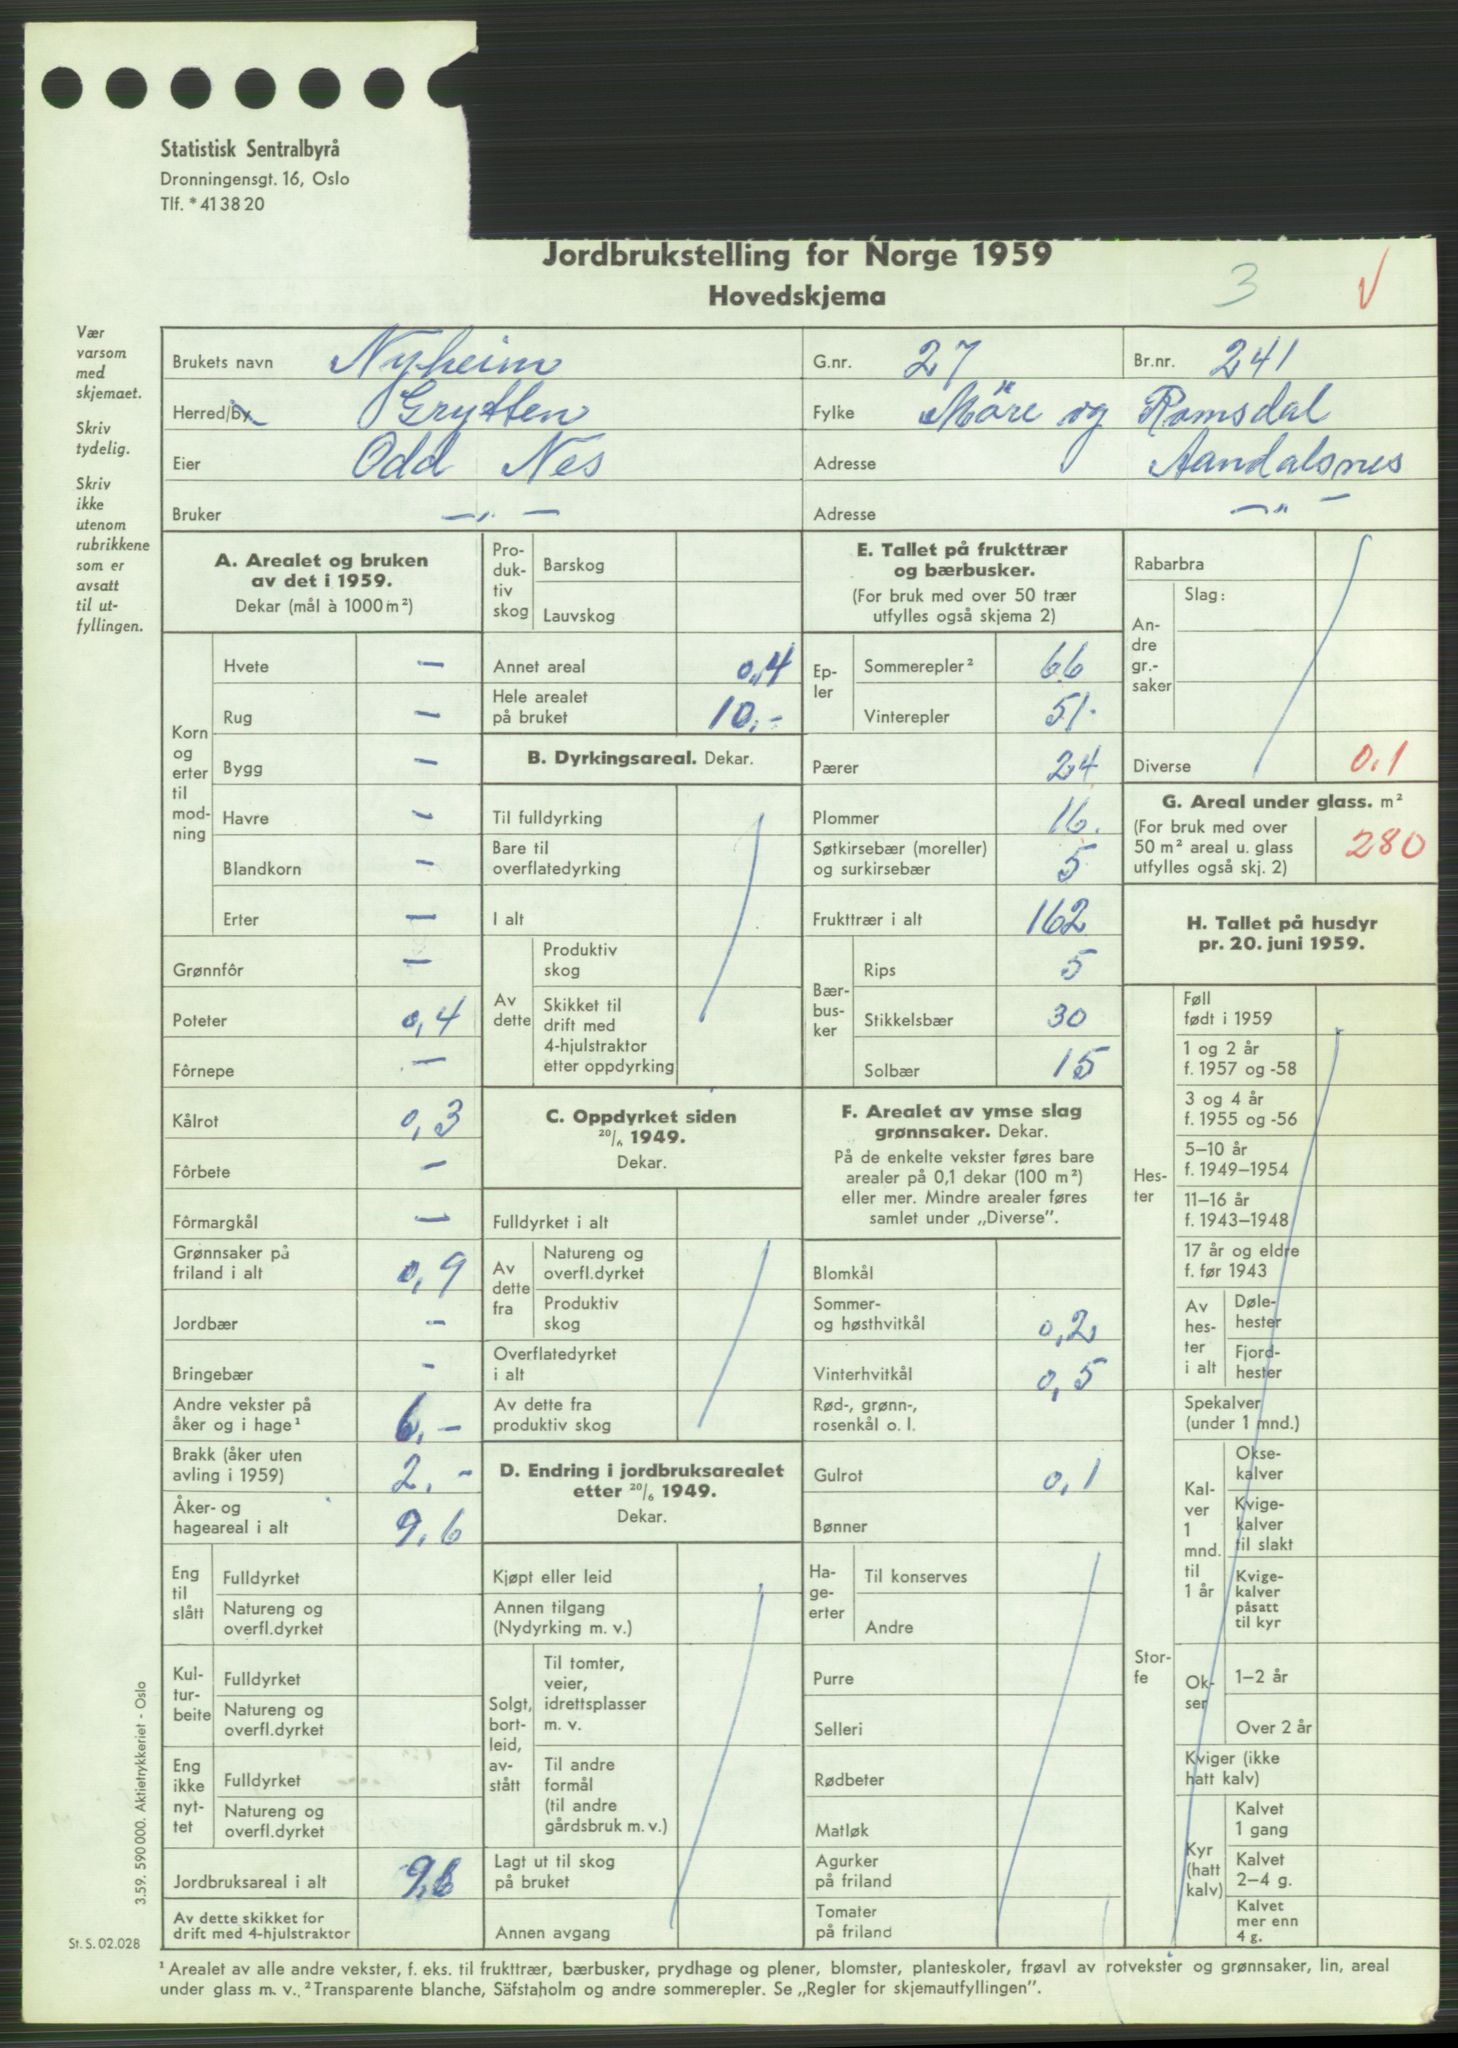 Statistisk Sentralbyrå
Dronningensgt. 16, Oslo
Tlf. * 41 38 20
Jordbrukstelling for Norge 1959
Hovedskjema
3
Vær
varsom
med
skjemaet.
Skriv
tydelig.
Skriv
ikke
utenom
rubrikkene
som er
avsatt
til ut-
fyllingen.
Brukets navn Nyheim G.nr. 27 Br.nr. 241
Herred/by Grytten Fylke Möre og Romsdal
Eier Odd Nes Adresse Aandalsnes
Bruker —„— Adresse —„—
A. Arealet og bruken
av det i 1959.
Dekar (mål à 1000 m²)
Korn
og
erter
til
mod-
ning
Hvete —
Rug —
Bygg —
Havre —
Blandkorn —
Erter —
Grønnfôr —
Poteter 0,4
Fôrnepe —
Kålrot 0,3
Fôrbete —
Fôrmargkål —
Grønnsaker på
friland i alt 0,9
Jordbær —
Bringebær -
Andre vekster på
åker og i hage¹ 6,-
Brakk (åker uten
avling i 1959) 2,-
Åker- og
hageareal i alt 9,6
Eng
til
slått
Fulldyrket
Natureng og
overfl.dyrket
Kul-
tur-
beite
Fulldyrket
Natureng og
overfl.dyrket
Eng
ikke
nyt-
tet
Fulldyrket
Natureng og
overfl.dyrket
Jordbruksareal i alt 9,6
Av dette skikket for
drift med 4-hjulstraktor
Pro-
duk-
tiv
skog
Barskog
Lauvskog
Annet areal 0,4
Hele arealet
på bruket 10,-
B. Dyrkingsareal. Dekar.
Til fulldyrking
Bare til
overflatedyrking
I alt
Av
dette
Produktiv
skog
Skikket til
drift med
4-hjulstraktor
etter oppdyrking
C. Oppdyrket siden
20/6 1949.
Dekar.
Fulldyrket i alt
Av
dette
fra
Natureng og
overfl.dyrket
Produktiv
skog
Overflatedyrket
i alt
Av dette fra
produktiv skog
D. Endring i jordbruksarealet
etter 20/6 1949.
Dekar.
Kjøpt eller leid
Annen tilgang
(Nydyrking m. v.)
Solgt,
bort-
leid,
av-
stått
Til tomter,
veier,
idrettsplasser
m. v.
Til andre
formål
(til andre
gårdsbruk m. v.)
Lagt ut til skog
på bruket
Annen avgang
E. Tallet på frukttrær
og bærbusker.
(For bruk med over 50 trær
utfylles også skjema 2)
Ep-
ler
Sommerepler² 66
Vinterepler 51.
Pærer 24
Plommer 16.
Søtkirsebær (moreller)
og surkirsebær 5
Frukttrær i alt 162
Bær-
bus-
ker
Rips 5
Stikkelsbær 30
Solbær 15
F. Arealet av ymse slag
grønnsaker. Dekar.
På de enkelte vekster føres bare
arealer på 0,1 dekar (100 m²)
eller mer. Mindre arealer føres
samlet under „Diverse”.
Blomkål
Sommer-
og høsthvitkål 0,2
Vinterhvitkål 0,5
Rød-, grønn-,
rosenkål o. l.
Gulrot 0,1
Bønner
Ha-
ge-
erter
Til konserves
Andre
Purre
Selleri
Rødbeter
Matløk
Agurker
på friland
Tomater
på friland
Rabarbra
An-
dre
gr.-
saker
Slag:
Diverse 0,1
G. Areal under glass. m²
(For bruk med over
50 m² areal u. glass
utfylles også skj. 2) 280
H. Tallet på husdyr
pr. 20. juni 1959.
Hes-
ter
Føll
født i 1959
1 og 2 år
f. 1957 og -58
3 og 4 år
f. 1955 og -56
5–10 år
f. 1949–1954
11–16 år
f. 1943–1948
17 år og eldre
f. før 1943
Av
hes-
ter
i alt
Døle-
hester
Fjord-
hester
Stor-
fe
Spekalver
(under 1 mnd.)
Kal-
ver
1
mnd.
til
1 år
Okse-
kalver
Kvige-
kalver
til slakt
Kvige-
kalver
påsatt
til kyr
Ok-
ser
1–2 år
Over 2 år
Kviger (ikke
hatt kalv)
Kyr
(hatt
kalv)
Kalvet
1 gang
Kalvet
2–4 g.
Kalvet
mer enn
4 g.
3.59. 590 000. Aktietrykkeriet - Oslo
St. S. 02.028
¹ Arealet av alle andre vekster, f. eks. til frukttrær, bærbusker, prydhage og plener, blomster, planteskoler, frøavl av rotvekster og grønnsaker, lin, areal
under glass m. v. ² Transparente blanche, Säfstaholm og andre sommerepler. Se „Regler for skjemautfyllingen”.